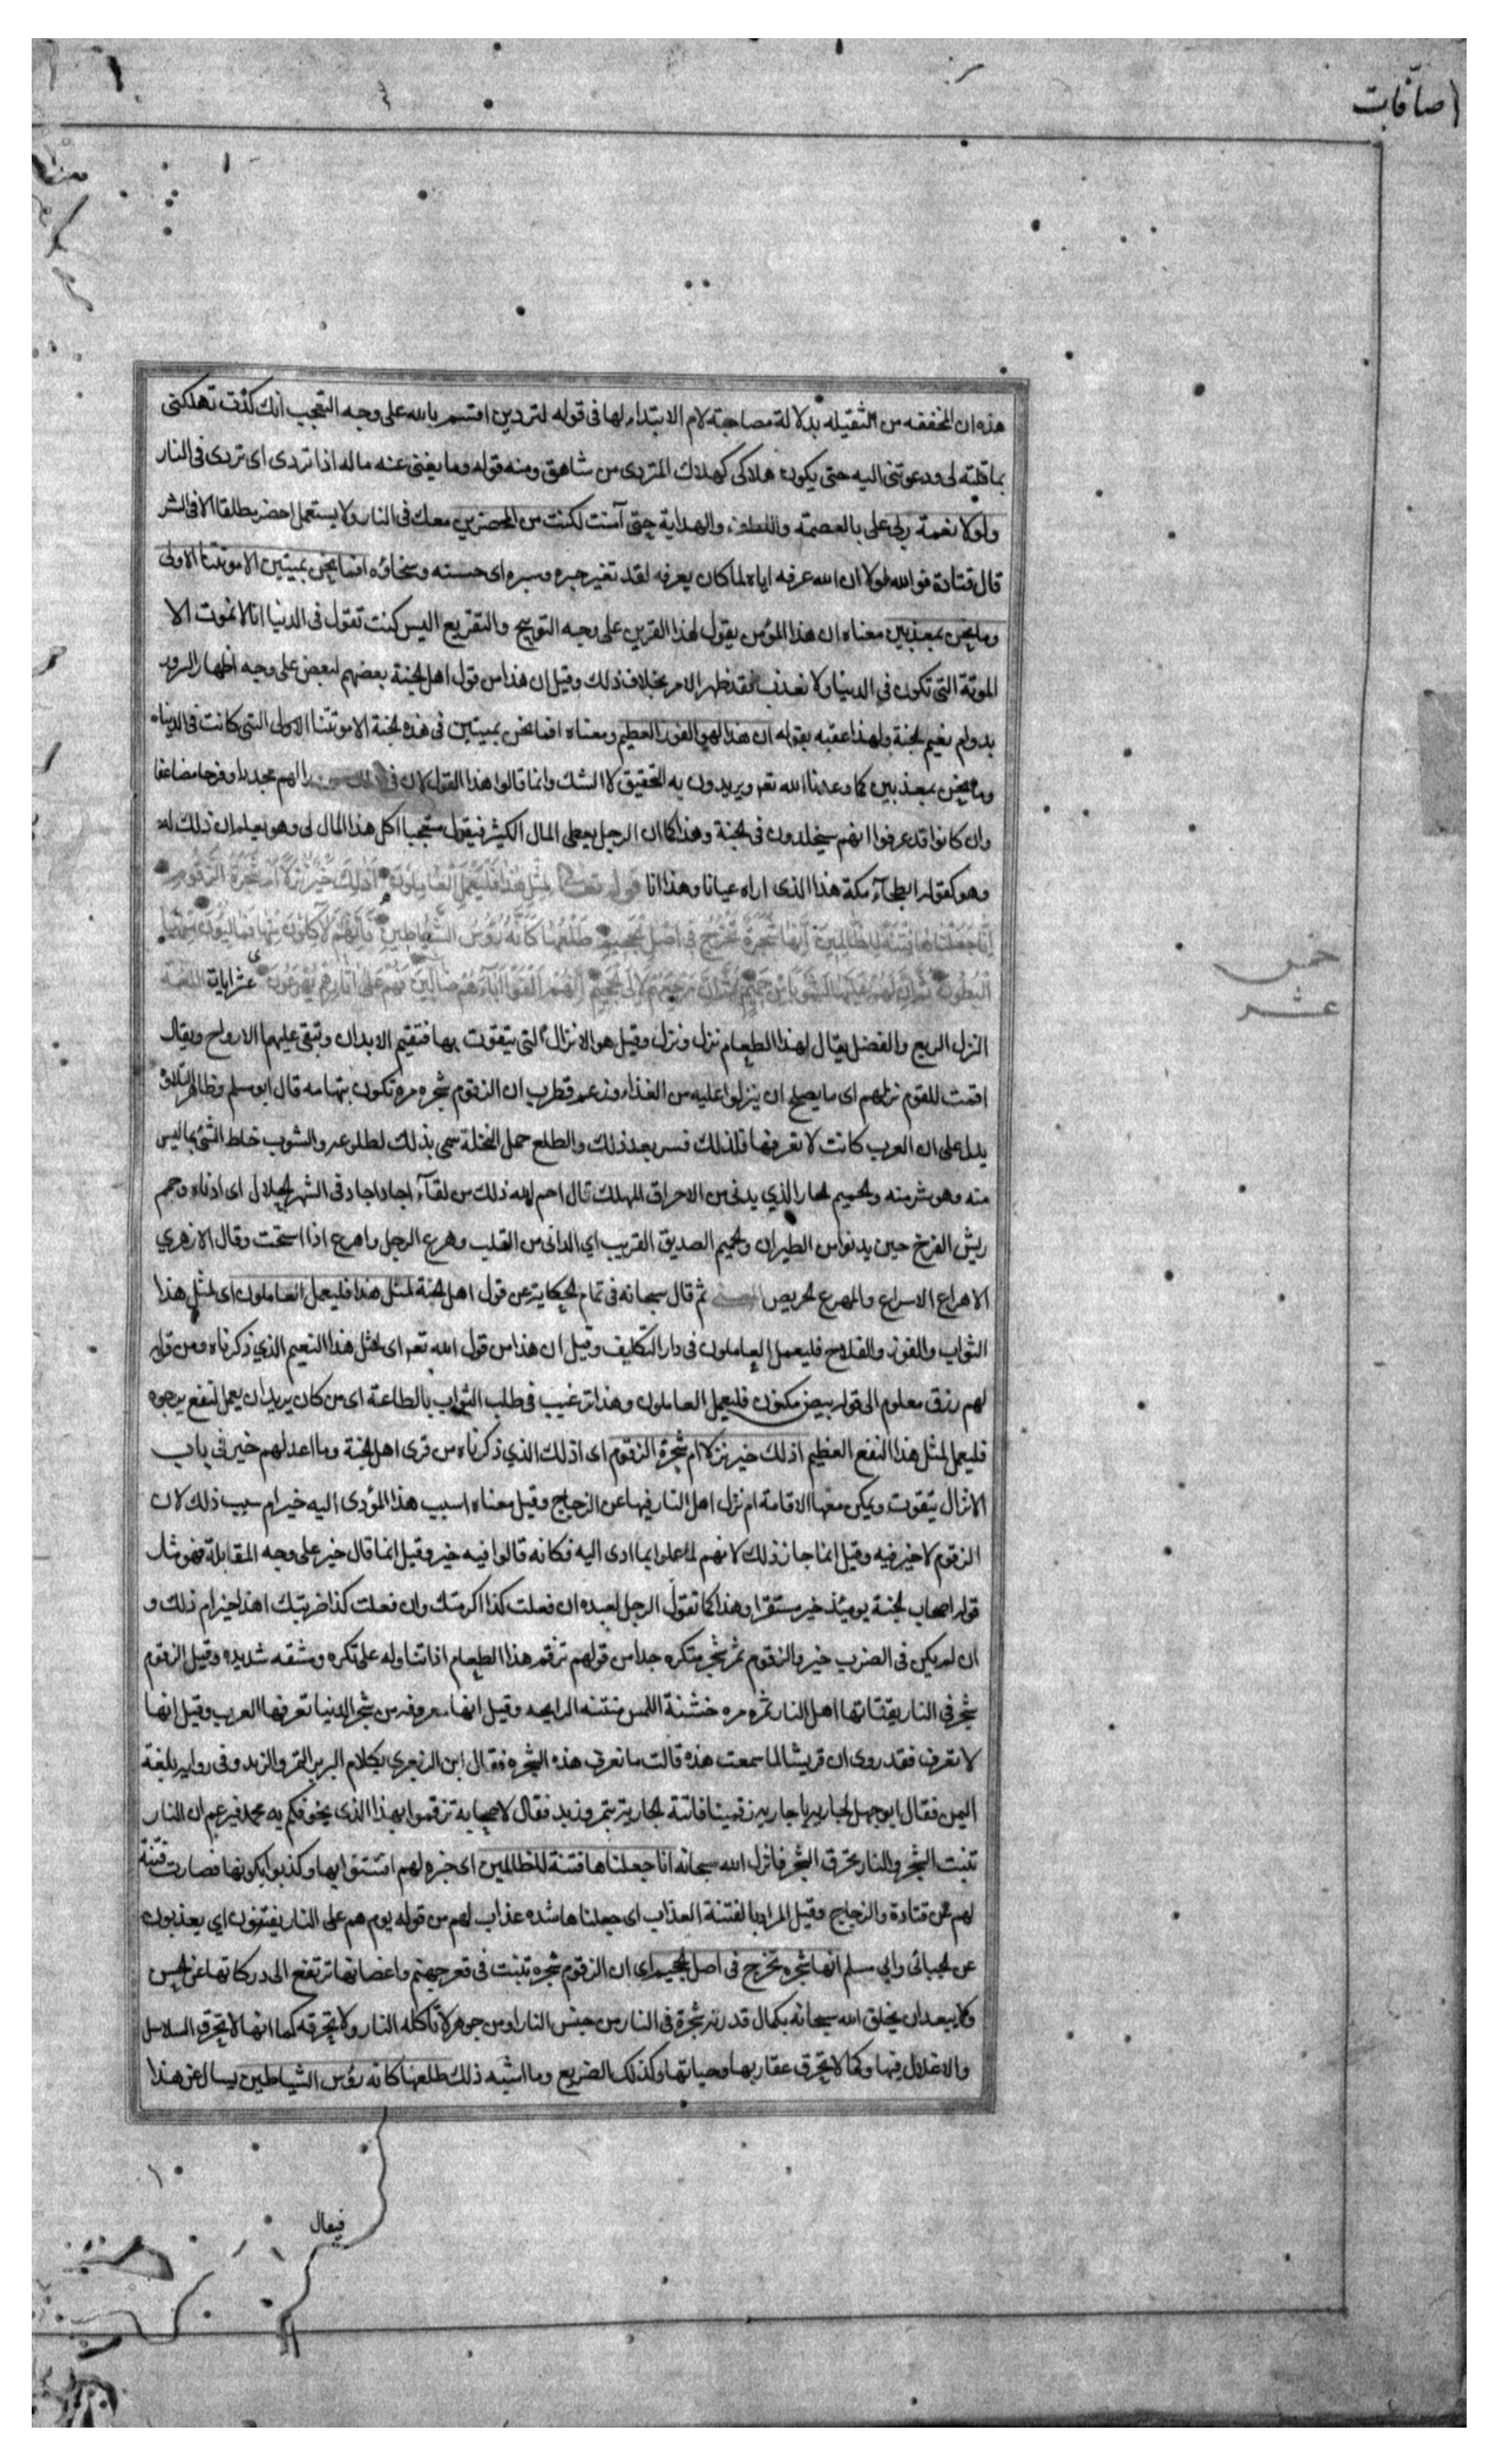 صآفات
هذه ان المخففه من الثقيله بدلالة مصاحبة لام الابتداء لها فى قوله لتردين اقتسم بالله على وجه التعجب انك كدت تهلكنى
بما قلته لى ودعوتنى اليه حتى يكون هلاكى كهلاك المتردى من شاهق ومنه قوله وما يغنى عنه ماله اذا تردى اى تردى فى النار
ولولا نعمة ربى على بالعصمة واللطف والهداية حتى آمنت لكنت من المحضرين معك فى النار ولا يستعمل احضر مطلقا الا فى الشر
قال قتادة فوالله لولا ان الله عرفه اياه لما كان يعرفه لقد تغير حبره وسبره اى حسنه وسخاؤه افما نحن بميتين الا موتتنا الاولى
وما نحن بمعذبين معناه ان هذا المؤمن يقول لهذا القرين على وجه التوبيخ والتقريع اليس كنت تقول فى الدنيا انا لا نموت الا
الموتة التى تكون فى الدنيا ولا نعذب فقد ظهر الامر بخلاف ذلك وقيل ان هذا من قول اهل الجنة بعضهم لبعض على وجه اظهار السرور
بدوام نعيم الجنة ولهذا عقبه بقوله ان هذا لهو الفوز العظيم ومعناه افما نحن بميتين فى هذه الجنة الا موتتنا الاولى التى كانت فى الدنيا
وما نحن بمعذبين كما وعدنا الله تعه ويريدون به التحقيق لا الشك وانما قالوا هذا القول لان فى لهم مجددا وفرحا مضاعفا
وان كانوا قد عرفوا انهم سيخلدون فى الجنة وهذا كما ان الرجل يعطى المال الكثير فيقول متعجبا اكل هذا المال لى وهو يعلم ان ذلك له
وهو كقوله ابطحآء مكة هذا الذى اراه عيانا وهذا انا قوله تعالى لِمِثْلِ هٰذَا فَلْيَعْمَلِ الْعَامِلُونَ اَذٰلِكَ خَيْرٌ نُزُلًا اَمْ شَجَرَةُ الزَّقُّومِ
اِنَّا جَعَلْنَاهَا فِتْنَةً لِلظَّالِمِينَ اِنَّهَا شَجَرَةٌ تَخْرُجُ فِى اَصْلِ الْجَحِيمِ طَلْعُهَا كَاَنَّهُ رُؤُسُ الشَّيَاطِينِ فَاِنَّهُمْ لَآكِلُونَ مِنْهَا فَمَالِئُونَ مِنْهَا
الْبُطُونَ ثُمَّ اِنَّ لَهُمْ عَلَيْهَا لَشَوْبًا مِنْ حَمِيمٍ ثُمَّ اِنَّ مَرْجِعَهُمْ لَاِلَى الْجَحِيمِ اِنَّهُمْ اَلْفَوْا آبَآءَهُمْ ضَالِّينَ فَهُمْ عَلَى آثَارِهِمْ يُهْرَعُونَ عشر ايات اللغة
خمس
عشر
النزل الريع والفضل يقال لهذا الطعام نزل ونزل وقيل هو الانزال التى يتقوت بها فتقيم الابدان وتبقى عليها الارواح ويقال
اقمت للقوم نزلهم اى ما يصلح ان ينزلوا عليه من الغذاء وزعم قطرب ان الزقوم شجره مره تكون بتهامه قال ابو مسلم وظاهر التلاوة
يدل على ان العرب كانت لا تعرفها فلذلك فسر بعد ذلك والطلع حمل النخلة سمى بذلك لطلوعه والشوب خلط الشئ بما ليس
منه وهو شر منه والحميم الحار الذي يدنى من الاحراق المهلك قال احم الله ذلك من لقآء اجاد اجاد فى الشهر الحلال اى ادناه وحمم
ريش الفرخ حين يدنوا من الطيران والحميم الصديق القريب اي الدانى من القلب وهرع الرجل واهرع اذا استحث وقال الازهري
الاهراع الاسراع والمهرع الحريص المعنى ثم قال سبحانه فى تمام الحكاية عن قول اهل الجنة لمثل هذا فليعمل العاملون اى لمثل هذا
الثواب والفوز والفلاح فليعمل العاملون فى دار التكليف وقيل ان هذا من قول الله تعه اى لمثل هذا النعيم الذي ذكرناه ومن قوله
لهم رزق معلوم الى قوله بيض مكنون فليعمل العاملون وهذا ترغيب فى طلب الثواب بالطاعة اى من كان يريد ان يعمل لنفع يرجوه
فليعمل لمثل هذا النفع العظيم اذلك خير نزلا ام شجرة الزقوم اى اذلك الذي ذكرناه من قرى اهل الجنة وما اعد لهم خير فى باب
الانزال يتقوت ويمكن معها الاقامة ام نزل اهل النار فيها عن الزجاج وقيل معناه اسبب هذا المؤدى اليه خير ام سبب ذلك لان
الزقوم لا خير فيه وقيل انما جاز ذلك لانهم لما عملوا بما ادى اليه فكانه قالوا فيه خير وقيل انما قال خير على وجه المقابلة فهو مثل
قوله اصحاب الجنة يومئذ خير مستقرا وهذا كما تقول الرجل لعبده ان فعلت كذا اكرمتك وان فعلت كذا ضربتك اهذا خير ام ذلك و
ان لم يكن فى الضرب خير والزقوم ثمر شجر متكره جدا من قولهم تزقم هذا الطعام اذا تناوله على تكره ومشقه شديده وقيل الزقوم
شجر فى النار يقتاتها اهل النار ثمره مره خشنة اللمس منتنه الرايحه وقيل انها معروفه من شجر الدنيا تعرفها العرب وقيل انها
لا تعرف فقد روى ان قريشا لما سمعت هذه قالت ما نعرف هذه الشجره فقال ابن الزبعري بكلام البربر التمر والزبد وفى رواية بلغة
اليمن فقال ابو جهل لجاريه يا جاريه زقمينا فاتته الجارية بتمر وزبد فقال لاصحابه تزقموا بهذا الذى يخوفكم به محمد فيزعم ان النار
تنبت الشجر والنار تحرق الشجر فانزل الله سبحانه انا جعلناها فتنة للظالمين اى خبره لهم افتتنوا بها وكذبوا بكونها فصارت فتنة
لهم عن قتادة والزجاج وقيل المراد بالفتنة العذاب اى جعلناها شده عذاب لهم من قوله يوم هم على النار يفتنون اي يعذبون
عن الجبائى وابي مسلم انها شجره تخرج فى اصل الجحيم اى ان الزقوم شجره تنبت فى قعر جهنم واغصانها ترتفع الى دركاتها عن الحسن
ولا يبعد ان يخلق الله سبحانه بكمال قدرته شجرة فى النار من جنس النار او من جوهر لا تأكله النار ولا تحرقه كما انها لا تحرق السلاسل
والاغلال فيها وكما لا تحرق عقاربها وحياتها وكذلك الضريع وما اشبه ذلك طلعها كانه رؤس الشياطين يسال عن هذا
فيقال